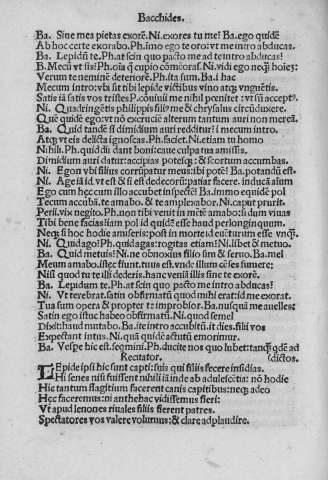 Bacchides.
Ba. Sine mea pietas exorē. Ni. exores tu me? Ba. ego quidē
Ab hoc certe exorabo. Ph. imo ego te oro: vt me intro abducas.
Ba. Lepidū te. Ph. at scin quo pacto me ad te intro abducas?
B. Mecū vt sis? Ph. oīa q̄ cupio cōmoras. Ni. vidi ego neq̄ hoīes:
Verum te neminē deteriorē. Ph. ita sum. Ba. i hac
Mecum intro: vbi sit tibi lepide victibus vino atq; vnguētis.
Satis iā satis vos tristes P. cōuiuii me nihil penitet: vt sū acceptꝰ.
Ni. Quadringētis philippis filiꝰ me & chrysalus circūduxere.
Quē quidē ego: vt nō excruciē alterum tantum auri non mereā.
Ba. Quid tandē si dimidium auri redditur? i mecum intro.
Atq; vt eis delicta ignoscas. Ph. faciet. Ni. etiam vt homo
Nihili. Ph. quid di dant boni caue culpa tua amissis.
Dimidium auri datur: accipias potesq; & scortum accumbas.
Ni. Egon vbi filius corrūpatur meus: ibi potē? Ba. potandū est.
Ni. Age iā id. vt est & si est dedecori: patiar facere. inducā aīum
Ego cum hęc cum illo accubet īspectē? Ba. immo equidē pol
Tecum accubā. te amabo. & te amplexabor. Ni. caput prurit.
Perii. vix negito. Ph. non tibi venit in mētē amabo: si dum viuas
Tibi bene facias: iam pol id quidē esse haud perlonginquum.
Neq; si hoc hodie amiseris: post in morte id euenturum esse vnq̄.
Ni. Quid ago? Ph. quid agas: rogitas etiam? Ni. libet & metuo.
Ba. Quid metuis? Ni. ne obnoxius filio sim & seruo. Ba. mel
Meum amabo. istęc fiunt. tuus est. vnde illum cēses sumere;
Nisi quod tu te illi dederis. hanc veniā illis sine te exorē.
Ba. Lepidum te. Ph. at scin quo pacto me intro abducas?
Ni. Vt terebrat. satin offirmatū quod mihi erat: id me exorat.
Tua sum opera & propter te improbior. Ba. nusquā me auelles:
Satin ego istuc habeo offirmatū. Ni. quod semel
Dixit: haud mutabo. Ba. ite intro accubitū. it dies. filii vos
Expectant intus. Ni. quā quidē actutū emorimur.
Ba. Vespe hic est. seqmini. Ph. ducite nos quo lubet: tanq̄ qdē ad
Recitator. dictos.
LEpide ipsi hic sunt capti: suis qui filiis fecere insidias.
Hi senes nisi fuissent nihili iā inde ab adulescētia: nō hodie
Hic tantum flagitium facerent canis capitibus: neq; adeo
Hęc faceremus: ni anthehac vidissemus fieri:
Vt apud lenones riuales filiis fierent patres.
Spectatores vos valere volumus: & clare adplaudire.